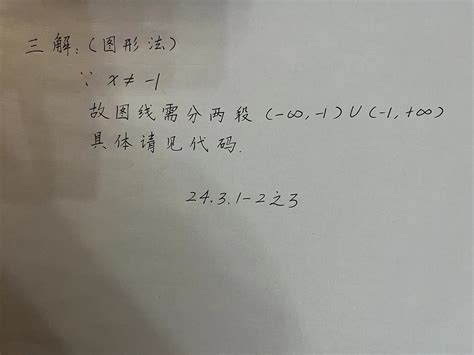 三解：(图形法)
∵ x≠-1
故图线需分两段 (-∞,-1)∪(-1,+∞)
具体请见代码.
24.3.1-2之3